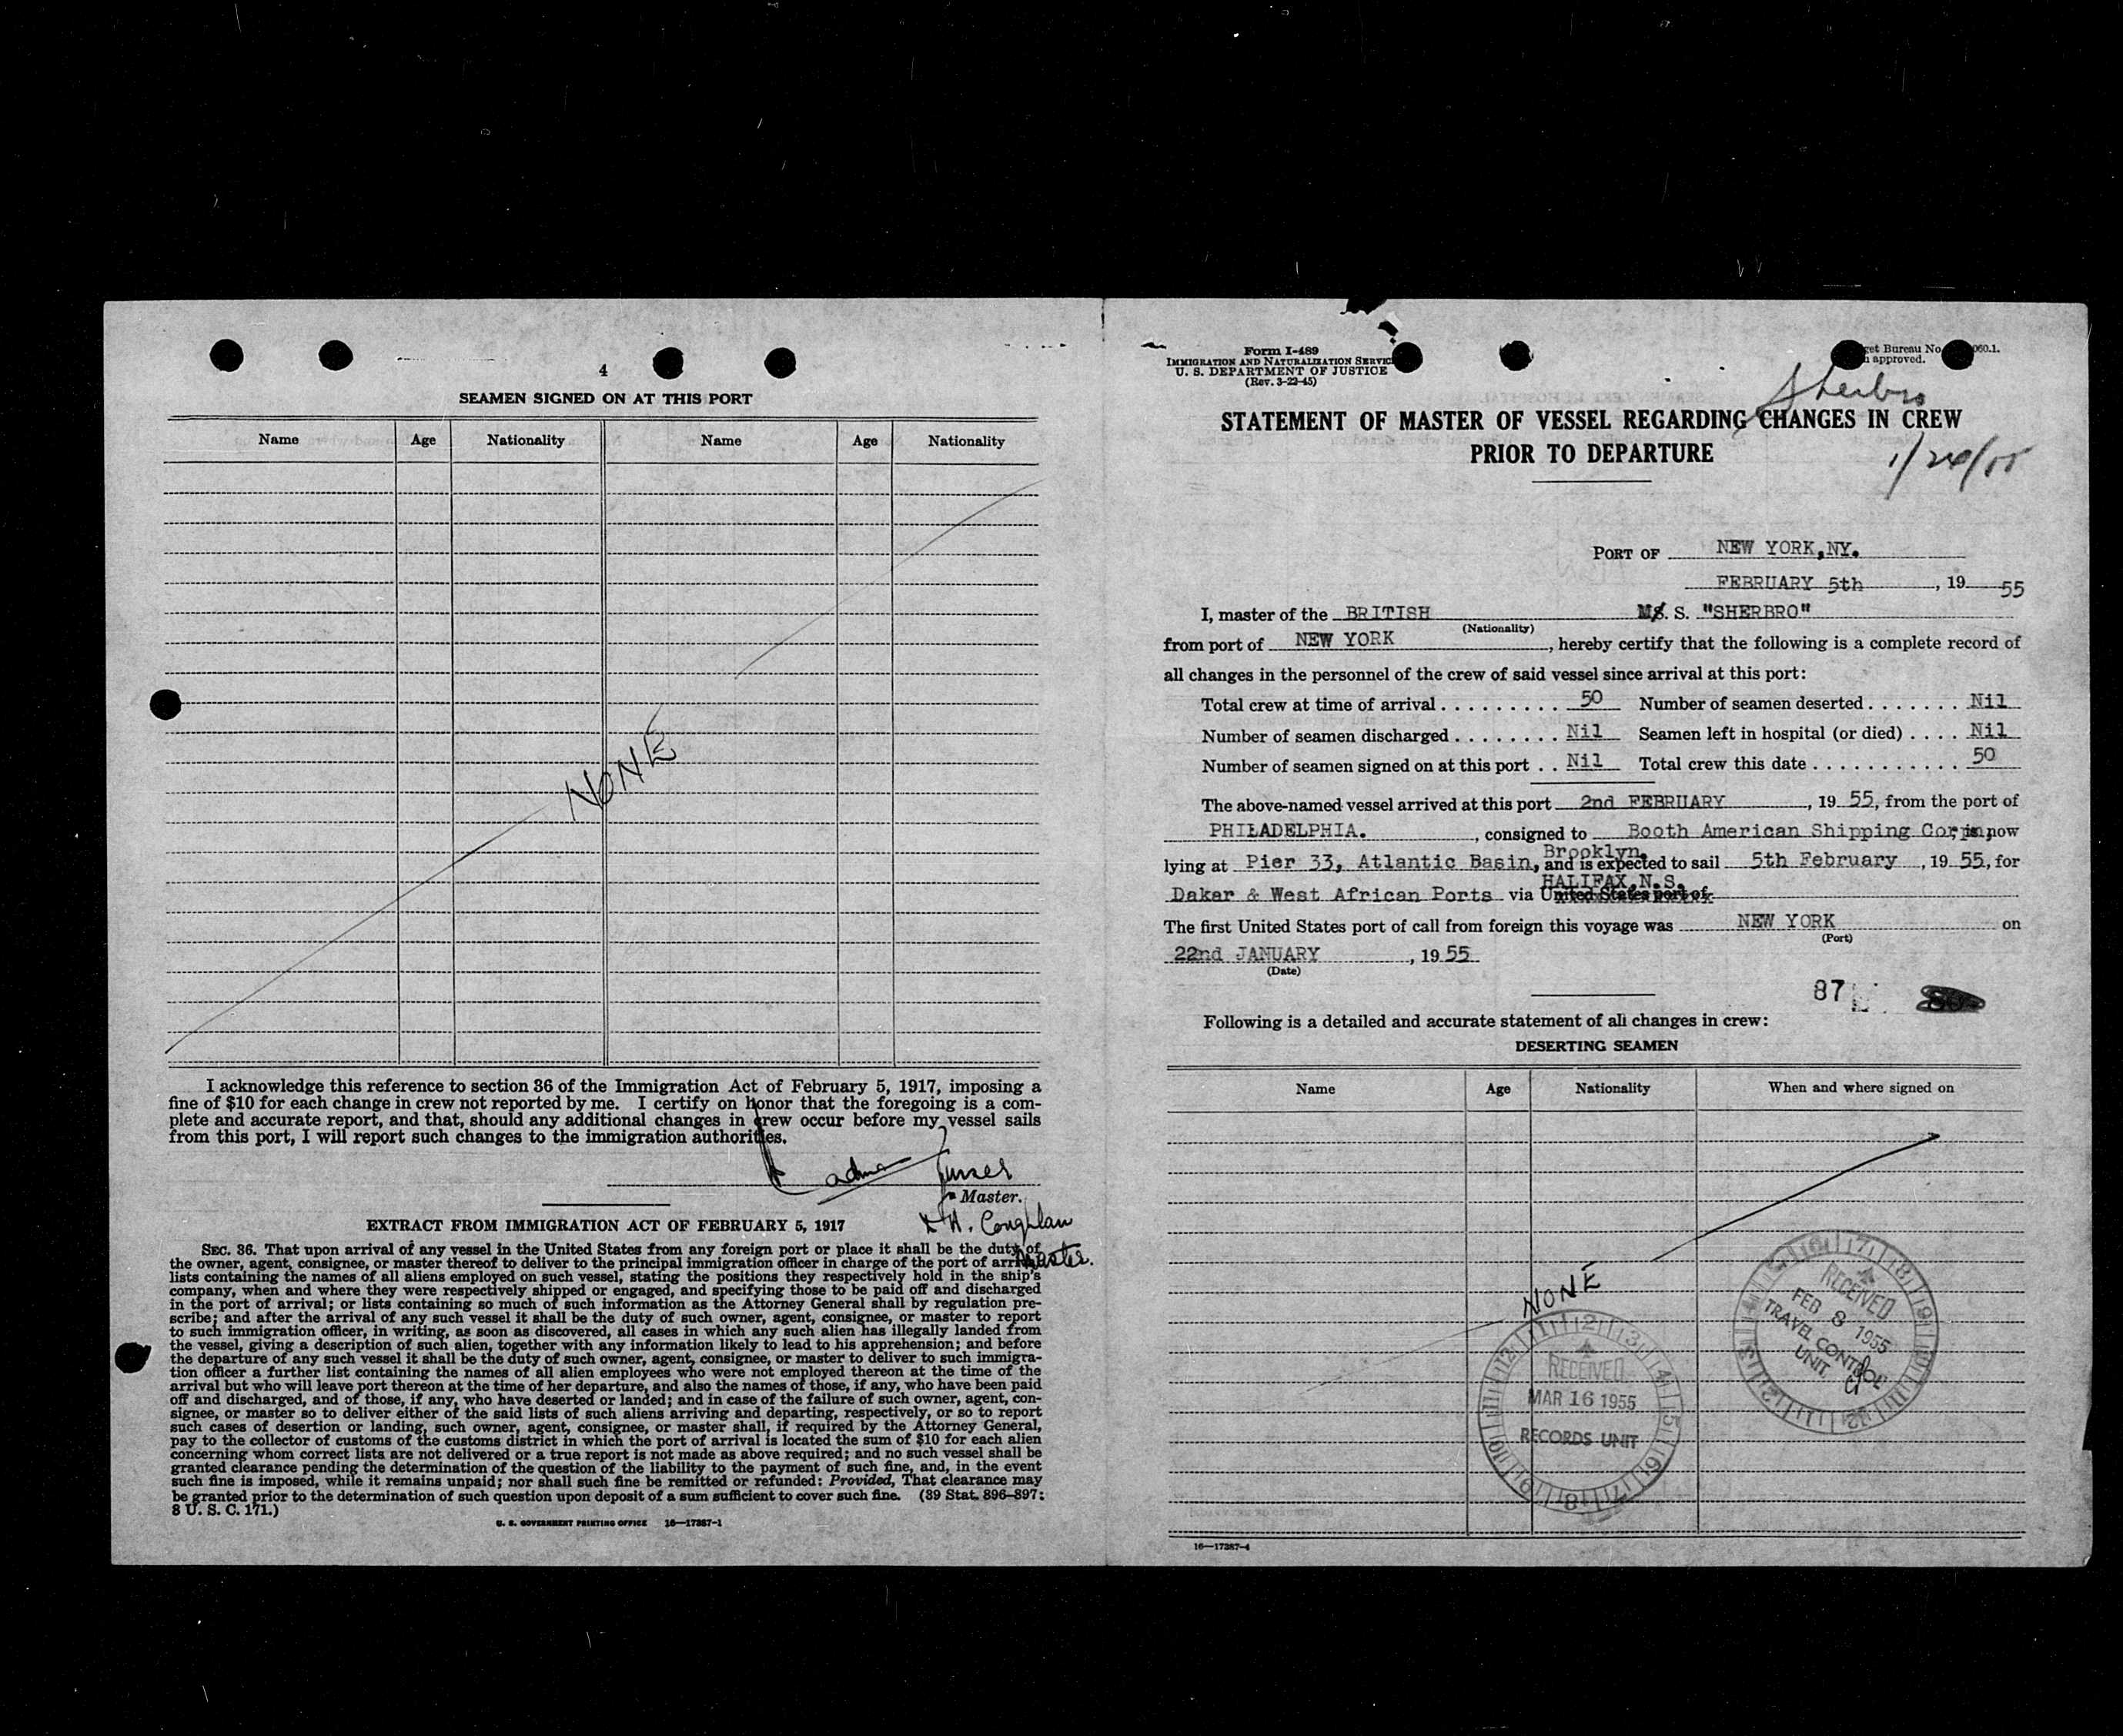 4
SEAMEN SIGNED ON AT THIS PORT
Name Age Nationality Name Age Nationality
NONE
I acknowledge this reference to section 36 of the Immigration Act of February 5, 1917, imposing a
fine of $10 for each change in crew not reported by me. I certify on honor that the foregoing is a com-
plete and accurate report, and that, should any additional changes in crew occur before my vessel sails
from this port, I will report such changes to the immigration authorities.
Master.
Coughlan
Master.
EXTRACT FROM IMMIGRATION ACT OF FEBRUARY 5, 1917
SEC. 36. That upon arrival of any vessel in the United States from any foreign port or place it shall be the duty of
the owner, agent, consignee, or master thereof to deliver to the principal immigration officer in charge of the port of arrival
lists containing the names of all aliens employed on such vessel, stating the positions they respectively hold in the ship's
company, when and where they were respectively shipped or engaged, and specifying those to be paid off and discharged
in the port of arrival; or lists containing so much of such information as the Attorney General shall by regulation pre-
scribe; and after the arrival of any such vessel it shall be the duty of such owner, agent, consignee, or master to report
to such immigration officer, in writing, as soon as discovered, all cases in which any such alien has illegally landed from
the vessel, giving a description of such alien, together with any information likely to lead to his apprehension; and before
the departure of any such vessel it shall be the duty of such owner, agent, consignee, or master to deliver to such immigra-
tion officer a further list containing the names of all alien employees who were not employed thereon at the time of the
arrival but who will leave port thereon at the time of her departure, and also the names of those, if any, who have been paid
off and discharged, and of those, if any, who have deserted or landed; and in case of the failure of such owner, agent, con-
signee, or master so to deliver either of the said lists of such aliens arriving and departing, respectively, or so to report
such cases of desertion or landing, such owner, agent, consignee, or master shall, if required by the Attorney General,
pay to the collector of customs of the customs district in which the port of arrival is located the sum of $10 for each alien
concerning whom correct lists are not delivered or a true report is not made as above required; and no such vessel shall be
granted clearance pending the determination of the question of the liability to the payment of such fine, and, in the event
such fine is imposed, while it remains unpaid; nor shall such fine be remitted or refunded: Provided, That clearance may
be granted prior to the determination of such question upon deposit of a sum sufficient to cover such fine. (39 Stat. 896-897;
8 U. S. C. 171.)
U. S. GOVERNMENT PRINTING OFFICE 16—17387-1
Form I-489
IMMIGRATION AND NATURALIZATION SERVICE
U. S. DEPARTMENT OF JUSTICE
(Rev. 3-22-45)
get Bureau No. 060.1.
approved.
Sherbro
STATEMENT OF MASTER OF VESSEL REGARDING CHANGES IN CREW
PRIOR TO DEPARTURE
PORT OF NEW YORK, NY.
FEBRUARY 5th, 19 55
I, master of the BRITISH M/S. S. "SHERBRO"
(Nationality)
from port of NEW YORK, hereby certify that the following is a complete record of
all changes in the personnel of the crew of said vessel since arrival at this port:
Total crew at time of arrival . . . . . . . . . 50 Number of seamen deserted . . . . . . . Nil
Number of seamen discharged . . . . . . . . Nil Seamen left in hospital (or died) . . . . Nil
Number of seamen signed on at this port . . Nil Total crew this date . . . . . . . . . . . 50
The above-named vessel arrived at this port 2nd FEBRUARY, 19 55, from the port of
PHILADELPHIA., consigned to Booth American Shipping Corpn, is now
Brooklyn,
lying at Pier 33, Atlantic Basin, and is expected to sail 5th February, 19 55, for
HALIFAX, N.S.
Dakar & West African Ports via United States port of
The first United States port of call from foreign this voyage was NEW YORK on
(Port)
22nd JANUARY, 19 55
(Date)
87
Following is a detailed and accurate statement of all changes in crew:
DESERTING SEAMEN
Name Age Nationality When and where signed on
NONE
RECEIVED
FEB 8 1955
TRAVEL CONTROL
UNIT
RECEIVED
MAR 16 1955
RECORDS UNIT
16—17387-4